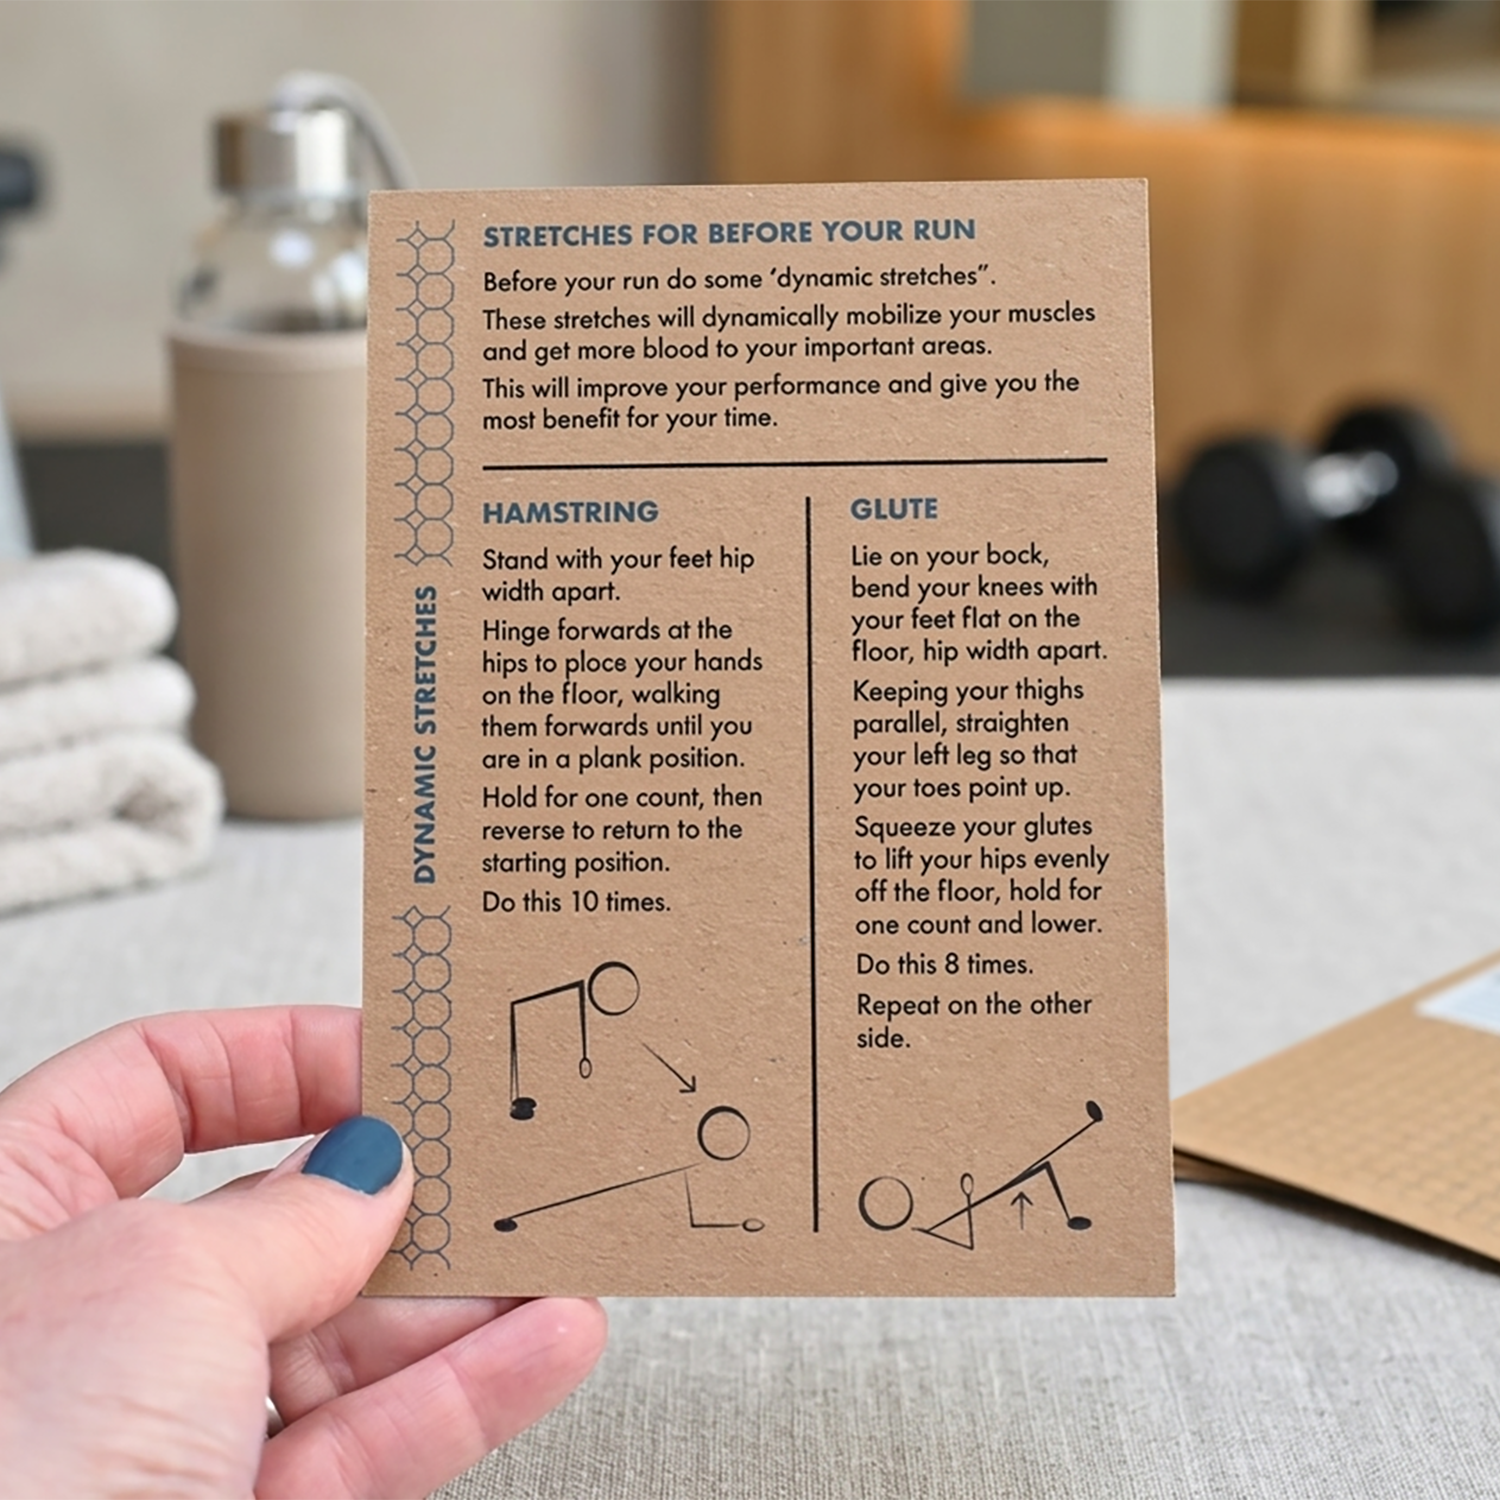 STRETCHES FOR BEFORE YOUR RUN
Before your run do some ‘dynamic stretches”.
These stretches will dynamically mobilize your muscles
and get more blood to your important areas.
This will improve your performance and give you the
most benefit for your time.
DYNAMIC STRETCHES
HAMSTRING
Stand with your feet hip
width apart.
Hinge forwards at the
hips to ploce your hands
on the floor, walking
them forwards until you
are in a plank position.
Hold for one count, then
reverse to return to the
starting position.
Do this 10 times.
GLUTE
Lie on your bock,
bend your knees with
your feet flat on the
floor, hip width apart.
Keeping your thighs
parallel, straighten
your left leg so that
your toes point up.
Squeeze your glutes
to lift your hips evenly
off the floor, hold for
one count and lower.
Do this 8 times.
Repeat on the other
side.